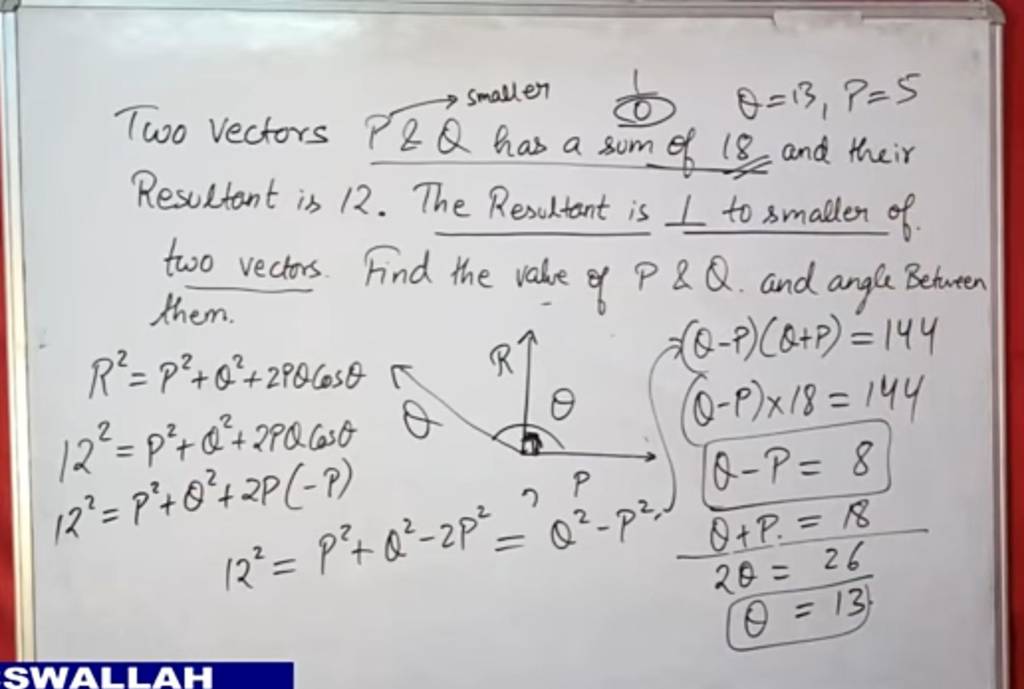 smaller
1/0
Q=13, P=5
Two vectors P & Q has a sum of 18 and their
Resultant is 12. The Resultant is ⊥ to smaller of
two vectors. Find the value of P & Q. and angle Between
them.
R² = P²+Q²+2PQCosθ
12² = P²+Q²+2PQCosθ
12² = P²+Q²+2P(-P)
12² = P²+Q²-2P² = Q²-P²
R
θ
Q
P
(Q-P)(Q+P) = 144
(Q-P)×18 = 144
Q-P = 8
Q+P. = 18
2Q = 26
Q = 13
SWALLAH